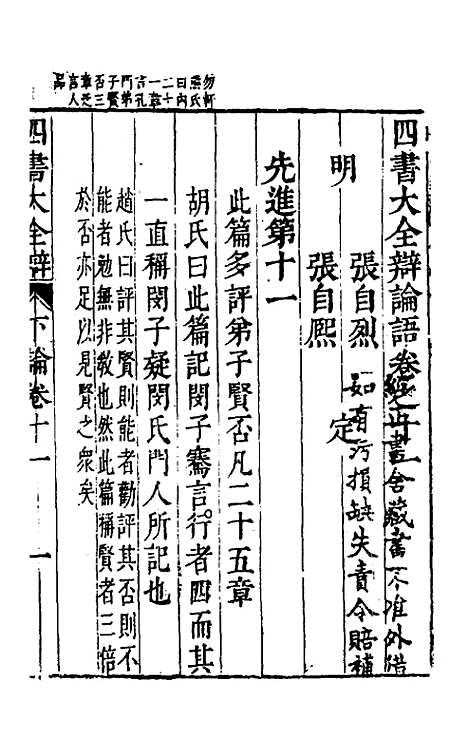 四書大全辯論語卷之十一
經正書舍藏書不准外借
如有污損缺失責令賠補
明
張自烈
張自熙
定
先進第十一
此篇多評弟子賢否凡二十五章
胡氏曰此篇記閔子騫言行者四而其
一直稱閔子疑閔氏門人所記也
趙氏曰評其賢則能者勸評其否則不
能者勉無非敎也然此篇稱賢者三倍
於否亦足以見賢之衆矣
勿軒
熊氏
曰內
二十
一章
言孔
門弟
子賢
否三
章旡
言人
品
四書大全辯
下論卷十一
一